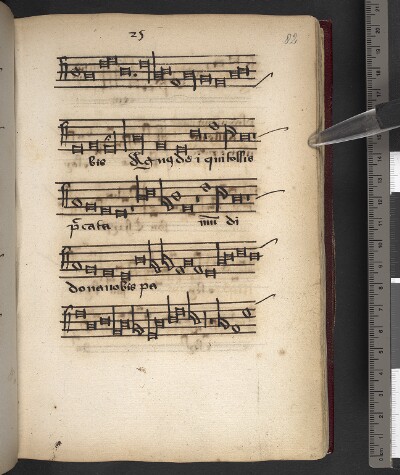 25
82
bis Agnus dei qui tollis
pccata mu di
dona nobis pa